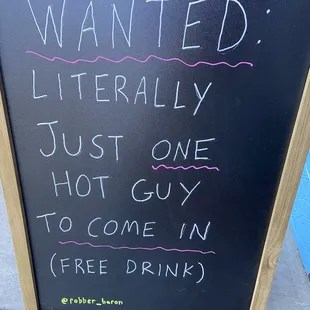 WANTED:
LITERALLY
JUST ONE
HOT GUY
TO COME IN
(FREE DRINK)
@robber_baron